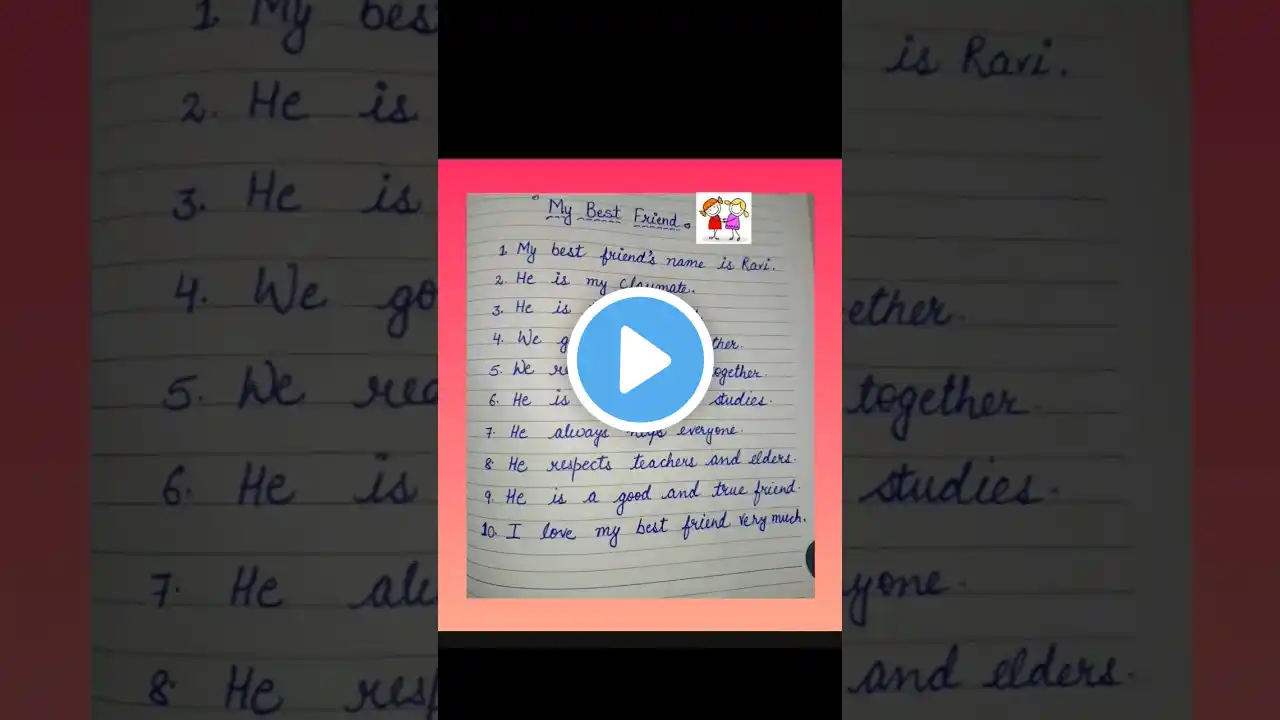 My Best Friend
1. My best friend's name is Ravi.
2. He is my classmate.
3. He is
4. We go together.
5. We together.
6. He is studies.
7. He always helps everyone.
8. He respects teachers and elders.
9. He is a good and true friend.
10. I love my best friend very much.